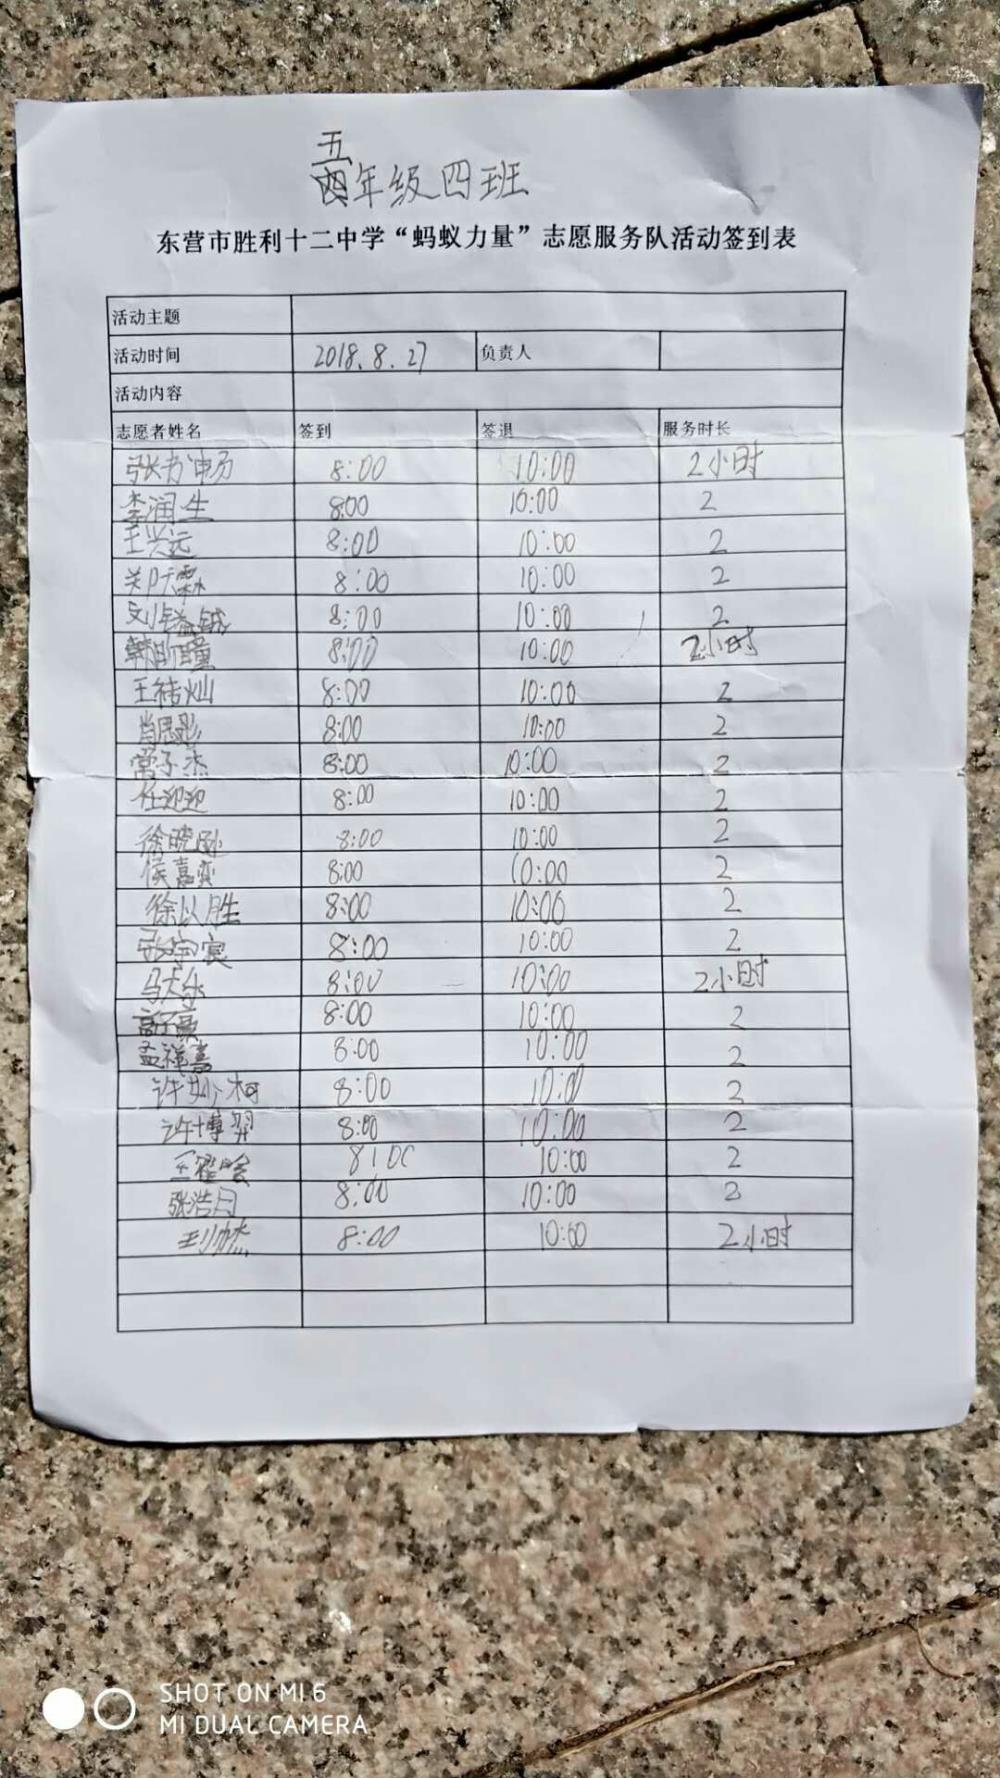 五
年级四班
东营市胜利十二中学“蚂蚁力量”志愿服务队活动签到表
活动主题
活动时间 2018.8.27 负责人
活动内容
志愿者姓名 签到 签退 服务时长
8:00 10:00 2小时
李润生 8:00 10:00 2
王兴远 8:00 10:00 2
郑天霖 8:00 10:00 2
刘镒铖 8:00 10:00 2
韩昕瞳 8:00 10:00 2小时
王祜灿 8:00 10:00 2
肖思彤 8:00 10:00 2
常子杰 8:00 10:00 2
任迎迎 8:00 10:00 2
徐晓 8:00 10:00 2
侯嘉奕 8:00 10:00 2
徐以胜 8:00 10:00 2
张宇宸 8:00 10:00 2
马大乐 8:00 10:00 2小时
高子豪 8:00 10:00 2
孟祥熹 8:00 10:00 2
许妙柯 8:00 10:00 2
许博羿 8:00 10:00 2
8:00 10:00 2
张浩月 8:00 10:00 2
8:00 10:00 2小时
SHOT ON MI 6
MI DUAL CAMERA